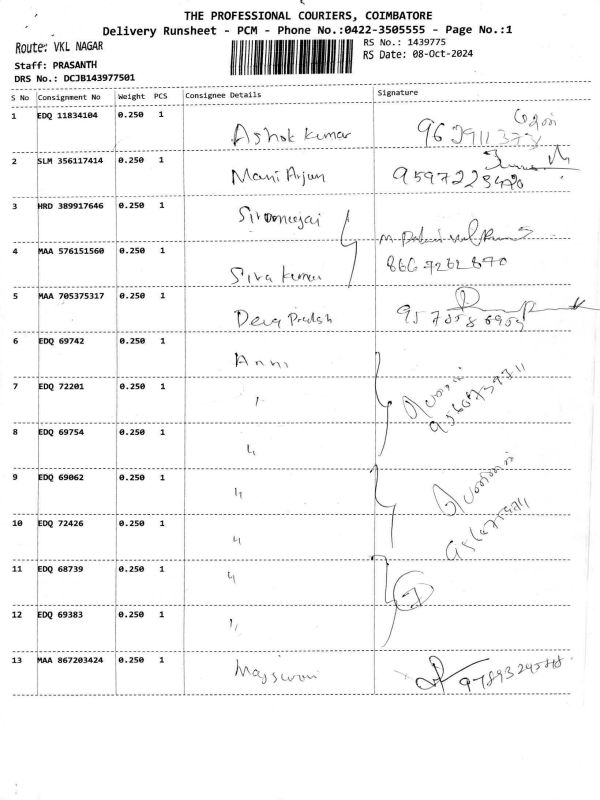 THE PROFESSIONAL COURIERS, COIMBATORE
Delivery Runsheet - PCM - Phone No.:0422-3505555 - Page No.:1
Route: VKL NAGAR
RS No.: 1439775
Staff: PRASANTH
RS Date: 08-Oct-2024
DRS No.: DCJB143977501
S No Consignment No Weight PCS Consignee Details Signature
1 EDQ 11834104 0.250 1 Ashok kumar
2 SLM 356117414 0.250 1 Mani Arjun
3 HRD 389917646 0.250 1
4 MAA 576151560 0.250 1 Siva kumar 8667262870
5 MAA 705375317 0.250 1 Deva Pradesh
6 EDQ 69742 0.250 1 Anni
7 EDQ 72201 0.250 1 "
8 EDQ 69754 0.250 1 "
9 EDQ 69062 0.250 1 "
10 EDQ 72426 0.250 1 "
11 EDQ 68739 0.250 1 " 7
12 EDQ 69383 0.250 1 "
13 MAA 867203424 0.250 1